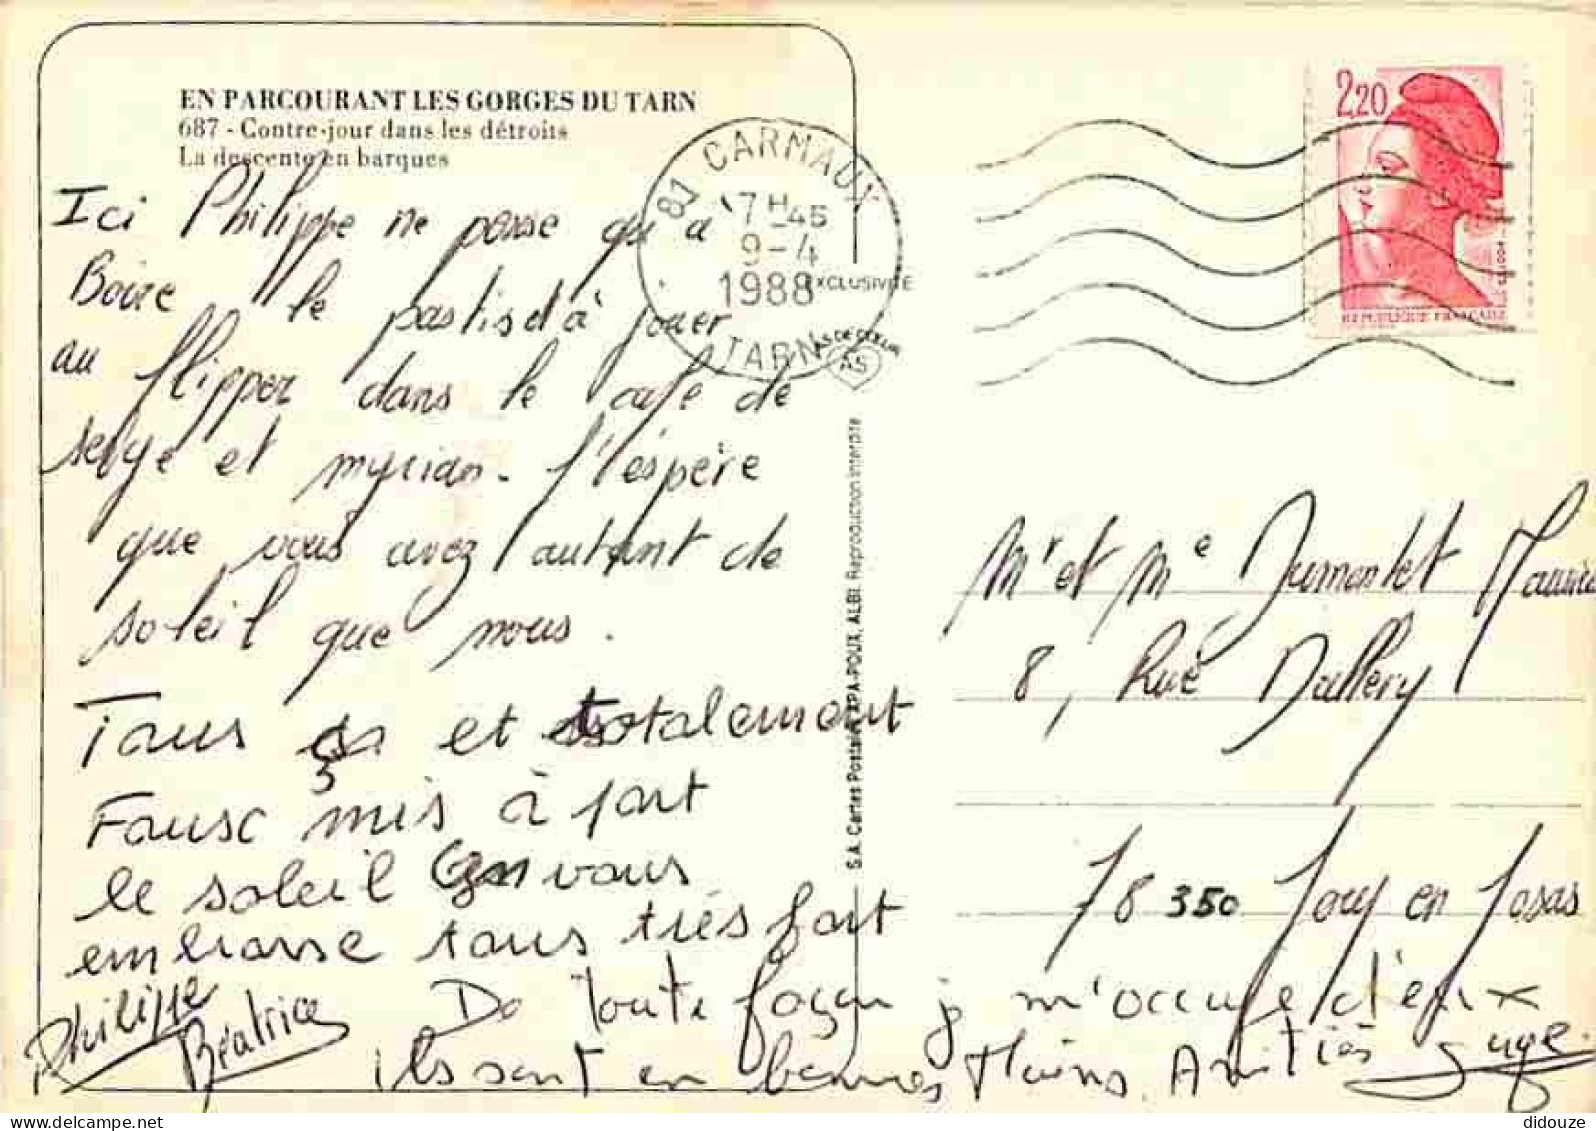 EN PARCOURANT LES GORGES DU TARN
687 - Contre-jour dans les détroits
La descente en barques
Ici Philippe ne pense qu'à
Boire le pastis et à jouer
au flipper dans le café de
serge et myriam. J'espère
que vous avez autant de
soleil que nous.
Tous ça et totalement
Fausc mis à part
le soleil on vous
embrasse tous très fort
Philippe
Béatrice
De Toute façon je m'occupe d'eux
ils sont en bonnes Mains Amitiés Serge.
81 CARMAUX
17H45
9-4
1988
TARN
EXCLUSIVITÉ
AS DE CŒUR
AS
S.A. Cartes Postales APA-POUX, ALBI. Reproduction interdite
2,20
REPUBLIQUE FRANÇAISE
Mr et Me Dumontet Maurice
8, Rue Dallery
78 350 Jouy en Josas
didouze